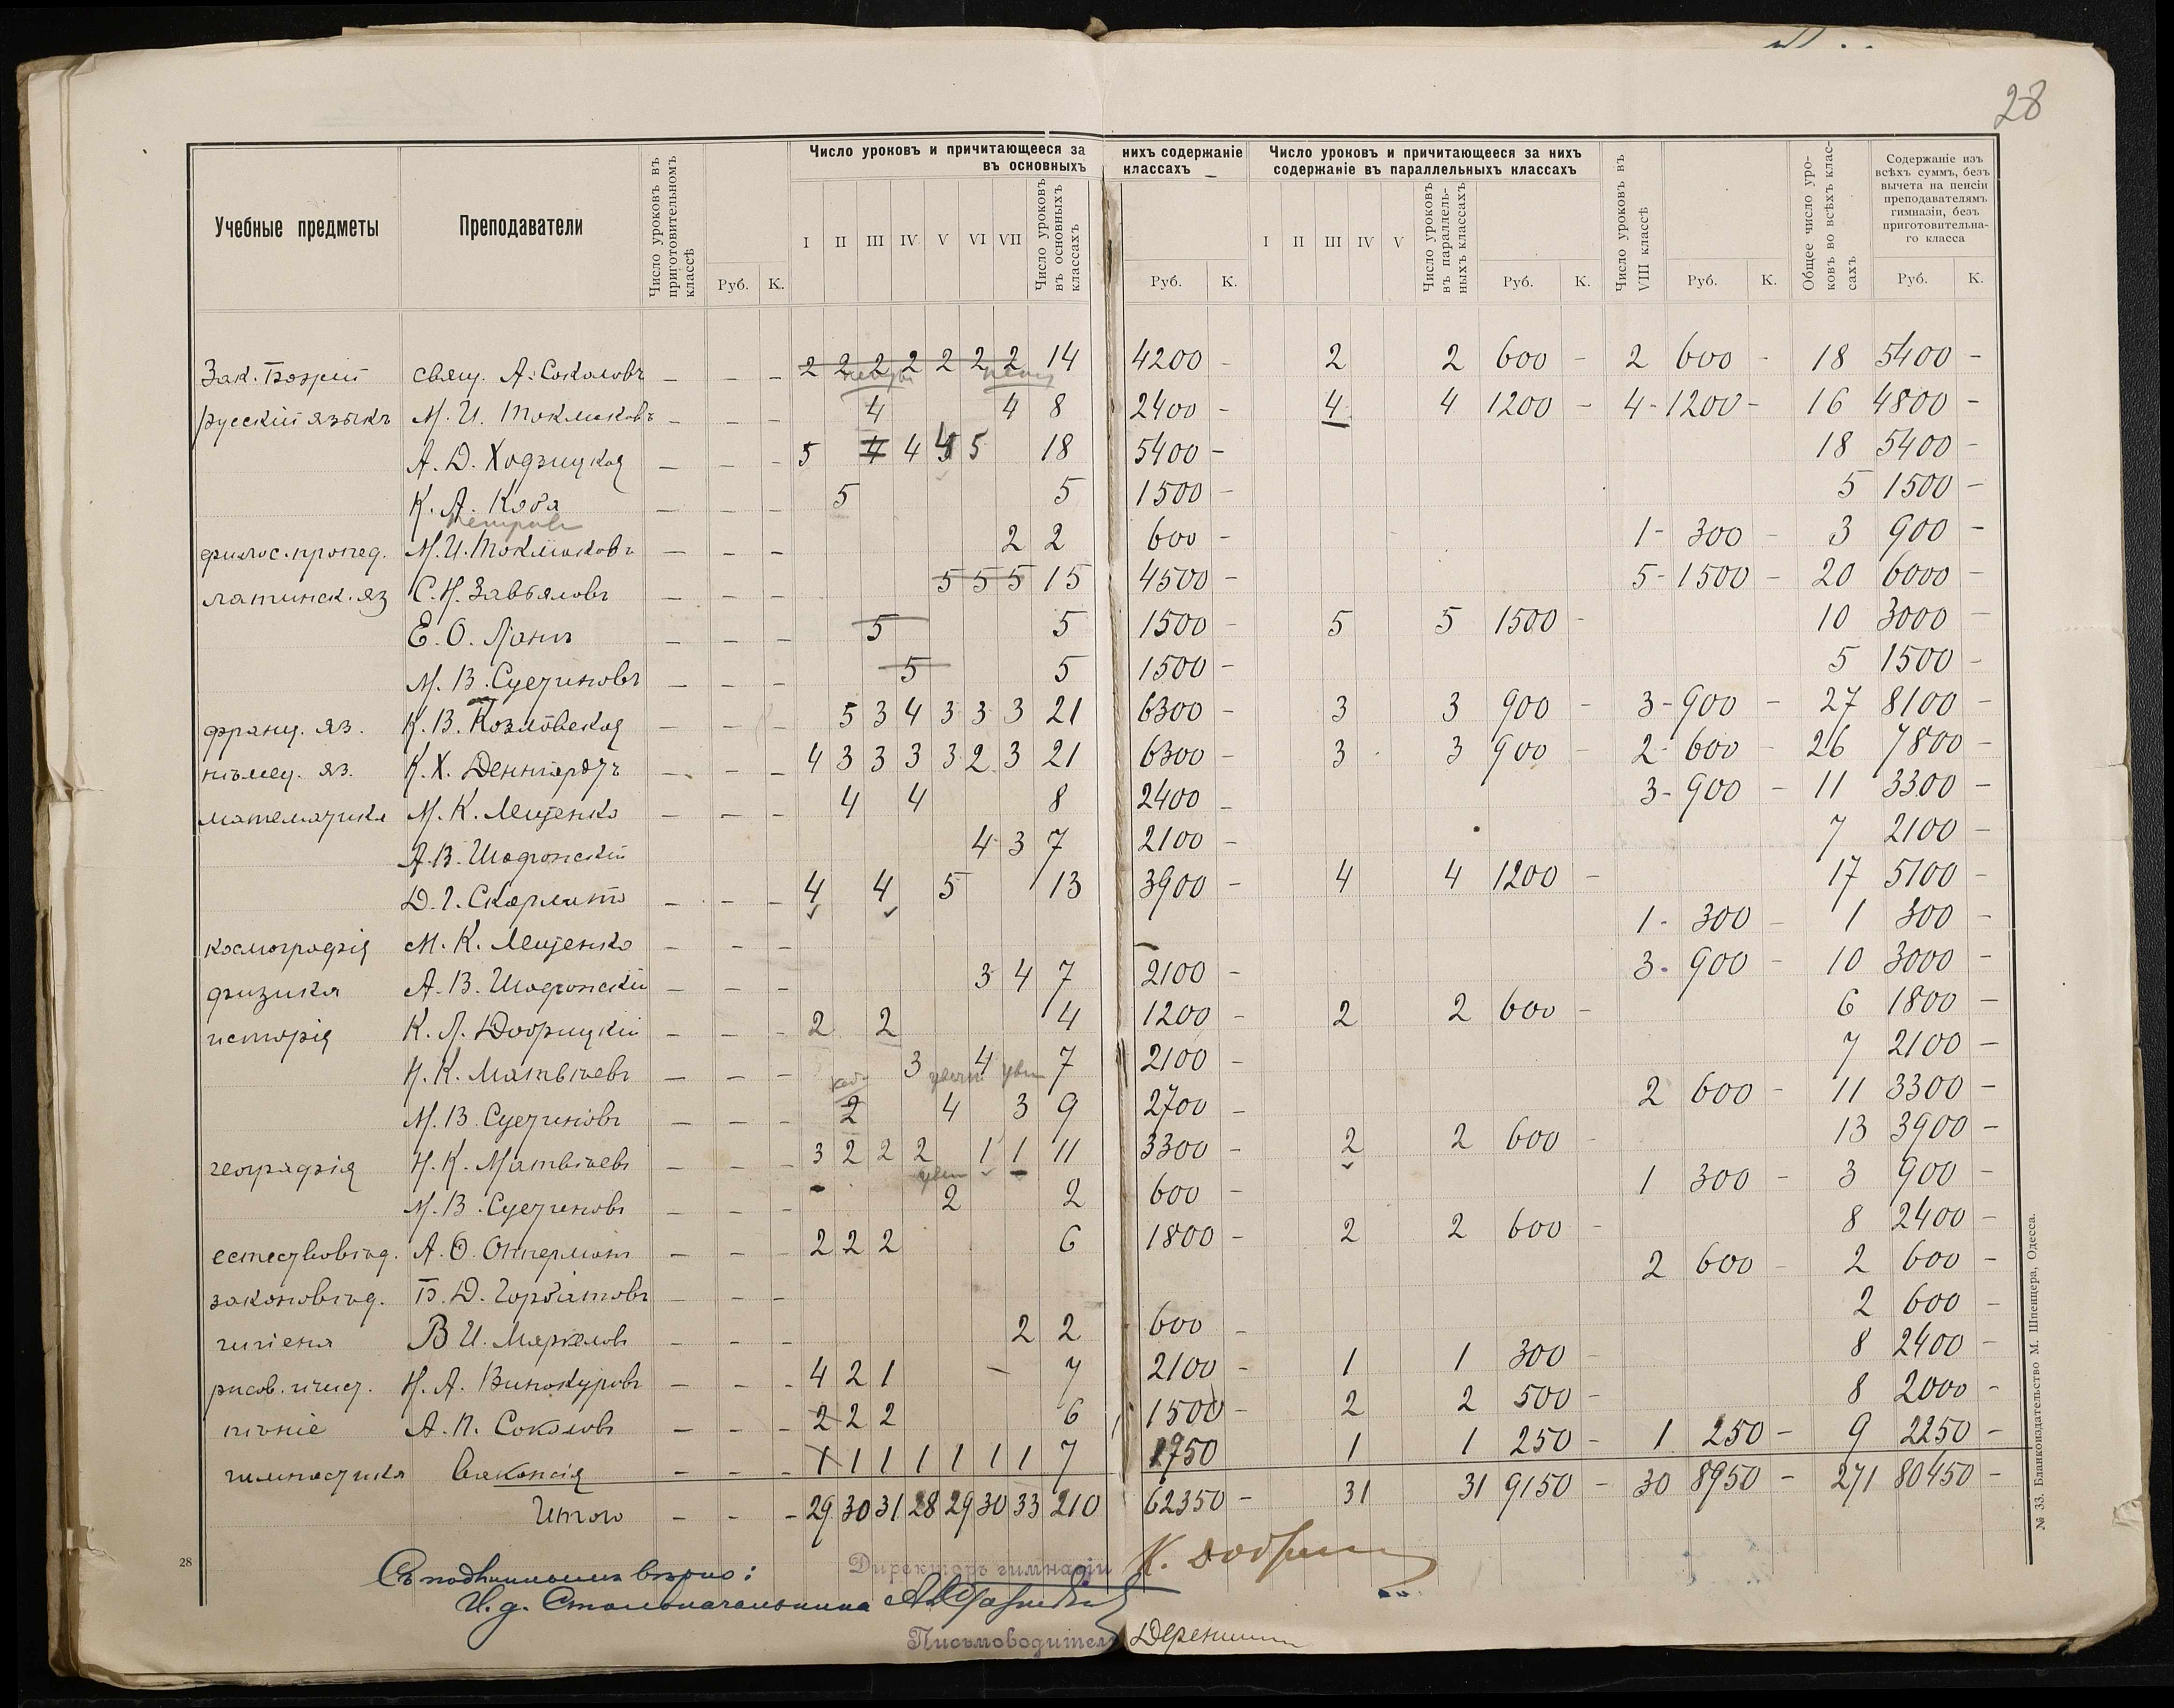 28
Учебные предметы
Преподаватели
Число уроковъ въ приготовительномъ классѣ
Руб. К.
Число уроковъ и причитающееся за нихъ содержаніе
въ основныхъ классахъ
I II III IV V VI VII
Число уроковъ въ основныхъ классахъ
Руб. К.
Число уроковъ и причитающееся за нихъ
содержаніе въ параллельныхъ классахъ
I II III IV V
Число уроковъ въ параллель-ныхъ классахъ
Руб. К.
Число уроковъ въ VIII классѣ
Руб. К.
Общее число уро-ковъ во всѣхъ клас-сахъ
Содержаніе изъ
всѣхъ суммъ, безъ
вычета на пенсіи
преподавателямъ
гимназіи, безъ
приготовительна-
го класса
Руб. К.
Зак. Божій свящ. А. Соколовъ — — — 2 2 2 2 2 2 2 14 4200 - 2 2 600 - 2 600 - 18 5400 -
русскій языкъ М. И. Токмаковъ — — — 4 4 8 2400 - 4 4 1200 - 4 - 1200 - 16 4800 -
А. D. Ходзицкая — — — 5 4 4 4 5 18 5400 - 18 5400 -
К. А. Коба — — — 5 5 1500 - 5 1500 -
филос. пропед. М. И. Токмаковъ — — — 2 2 600 - 1 - 300 - 3 900 -
латинск. яз С. Н. Завьяловъ — — — 5 5 5 15 4500 - 5 - 1500 - 20 6000 -
Е. О. Ланъ — — — 5 5 1500 - 5 5 1500 - 10 3000 -
М. В. Сустиновъ — — — 5 5 1500 - 5 1500 -
франц. яз. К. В. Козловская — — — 5 3 4 3 3 3 21 6300 - 3 3 900 - 3 - 900 - 27 8100 -
нѣмец. яз. К. Х. Деннгардтъ — — — 4 3 3 3 3 2 3 21 6300 - 3 3 900 - 2 - 600 - 26 7800 -
математика М. К. Лещенко — — — 4 4 8 2400 - 3 - 900 - 11 3300 -
А. В. Шафонскій 4 3 7 2100 - 7 2100 -
D. Г. Скарлато — — — 4 4 5 13 3900 - 4 4 1200 - 17 5100 -
космографія М. К. Лещенко — — — 1 - 300 - 1 300 -
физика А. В. Шафонскій — — — 3 4 7 2100 - 3 - 900 - 10 3000 -
исторія К. Л. Добрицкій — — — 2 2 4 1200 - 2 2 600 - 6 1800 -
Н. К. Матвѣевъ — — — 3 4 7 2100 - 7 2100 -
М. В. Сустиновъ — — — 2 4 3 9 2700 - 2 600 - 11 3300 -
географія Н. К. Матвѣевъ — — — 3 2 2 2 1 1 11 3300 - 2 2 600 - 13 3900 -
М. В. Сустиновъ — — — 2 2 600 - 1 300 - 3 900 -
естествовѣд. А. О. Отперманъ — — — 2 2 2 6 1800 - 2 2 600 - 8 2400 -
законовѣд. Б. D. Горбатовъ — — — 2 600 - 2 600 -
гигіена В И. Маркеловъ — — — 2 2 600 - 2 600 -
рисов. и чист. Н. А. Винокуровъ — — — 4 2 1 — 7 2100 - 1 1 300 - 8 2400 -
пѣніе А. П. Соколовъ — — — 2 2 2 6 1500 - 2 2 500 - 8 2000 -
гимнастика Вакансія — — — 1 1 1 1 1 1 1 7 1750 1 1 250 - 1 250 - 9 2250 -
Итого — — — 29 30 31 28 29 30 33 210 62350 - 31 31 9150 - 30 8950 - 271 80450 -
28
Съ подлиннымъ вѣрно:
Директоръ гимназіи
И. д. Столоначальника
Письмоводитель
№ 33. Бланкоиздательство М. Шпенцера, Одесса.